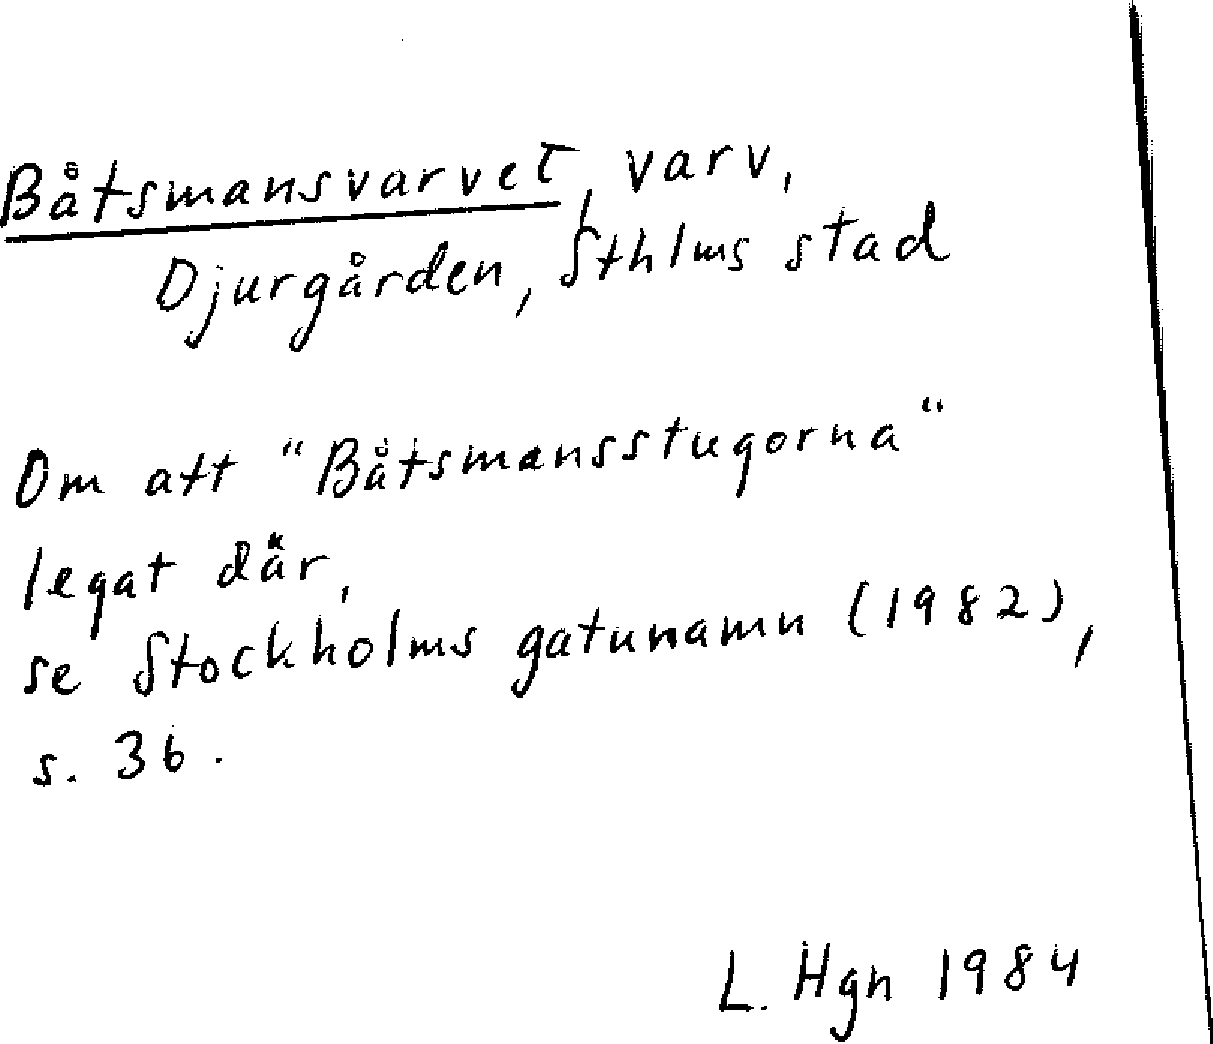 Båtsmansvarvet, varv,
Djurgården, Sthlms stad
Om att "Båtsmansstugorna"
legat där,
se Stockholms gatunamn (1982),
s. 36.
L. Hgn 1984